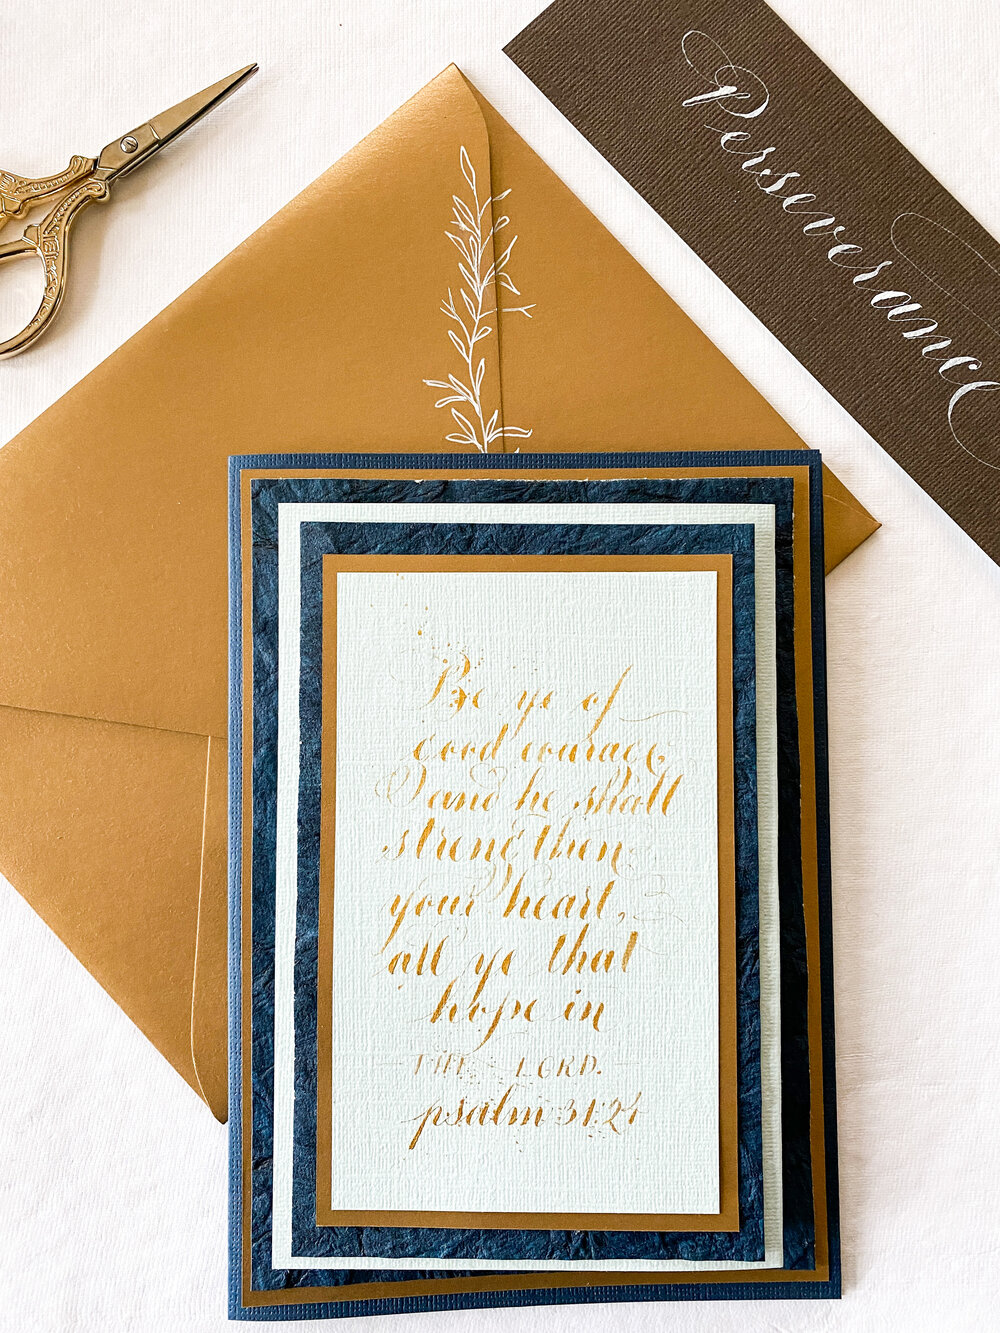 Perseverance
Be ye of
good courage,
and he shall
strengthen
your heart,
all ye that
hope in
THE LORD.
psalm 31:24